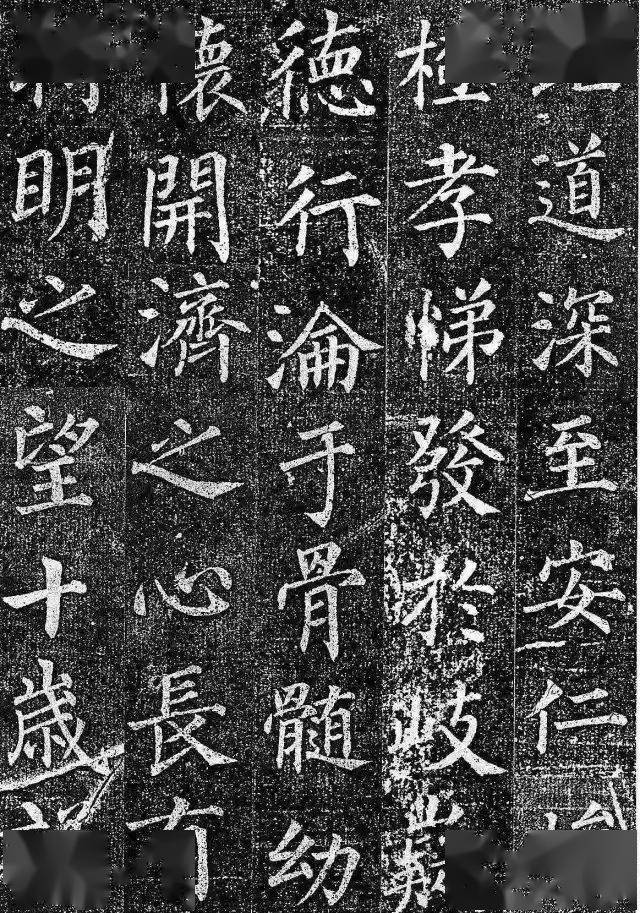 道深至安仁
極孝悌發於岐嶷
德行淪于骨髓幼
懷開濟之心長有
明之望十歲